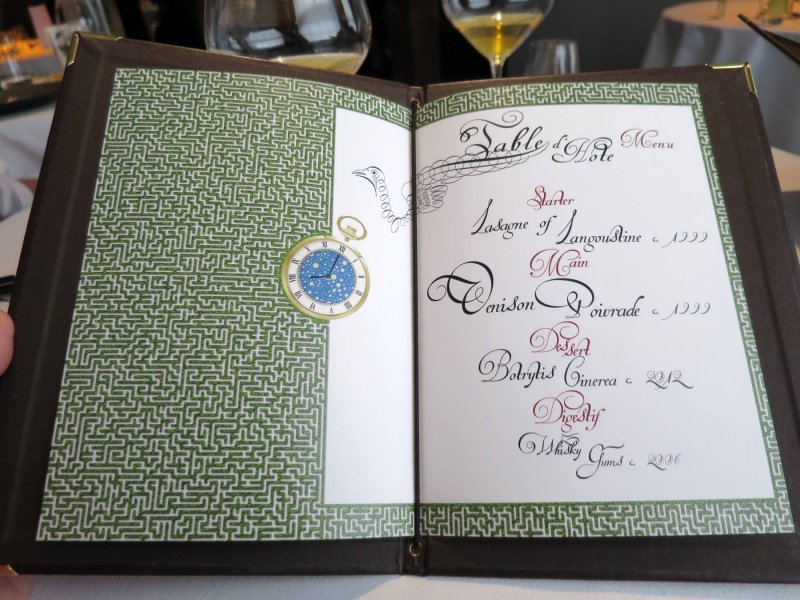 Table d'Hôte Menu
Starter
Lasagne of Langoustine c. 1999
Main
Venison Poivrade c. 1999
Dessert
Botrytis Cinerea c. 2012
Digestif
Whisky Gums c. 2006